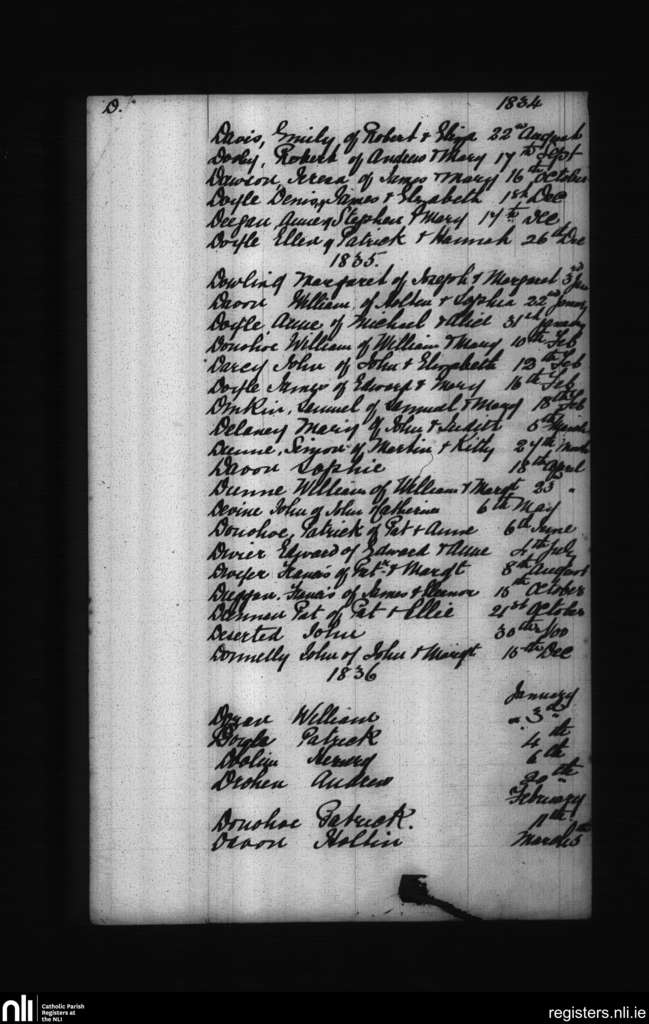 D. 1834
Davis, Emily of Robert & Eliza 22nd August
Dooly, Robert of Andrew & Mary 17th Sept
Dawson, of James & Mary 16th October
Doyle Denis, James & Elizabeth 18th Dec
Deegan Anne of Stephen & Mary 17th Dec
Doyle Ellen of Patrick & Hannah 26th Dec
1835.
Dowling Margaret of Joseph & Margaret 3rd Jan
Davon William of Holtin & Sophia 22nd January
Doyle Anne of Michael & Alice 31st January
Donohoe William of William & Mary 10th Feb
Darcy John of John & Elizabeth 12th Feb
Doyle James of Edward & Mary 16th Feb
Samuel of Samuel & Mary 18th Feb
Delaney Mary of John & Judith 5th March
Dunne, Simon of Martin & Kitty 27th March
Davon Sophie 18th April
Dunne William of William & Margt 23rd "
Devine John of John Catherine 6th May
Donohoe, Patrick of Pat & Anne 6th June
Dwier Edward of Edward & Anne 4th July
Dwyer Francis of Patk & Margt 8th August
Duggan, Francis of James & Eleanor 15th October
Dunnan Pat of Pat & Ellie 21st October
Deserted John 30th Nov
Donnelly John of John & Margt 15th Dec
1836
January
Doran William " 3rd
Doyle Patrick 4th
Doolin 6th
Drohen Andrew 20th
February
Donohoe Patrick. 11th
Davon Holtin March
nli Catholic Parish
Registers at
the NLI
registers.nli.ie